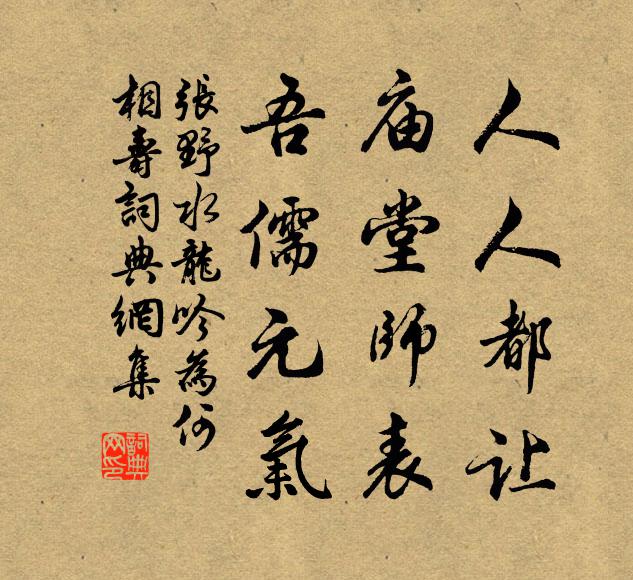 人人都让
庙堂師表
吾儒元氣
張野水龍吟為何
相壽詞典網集
詞典
网印